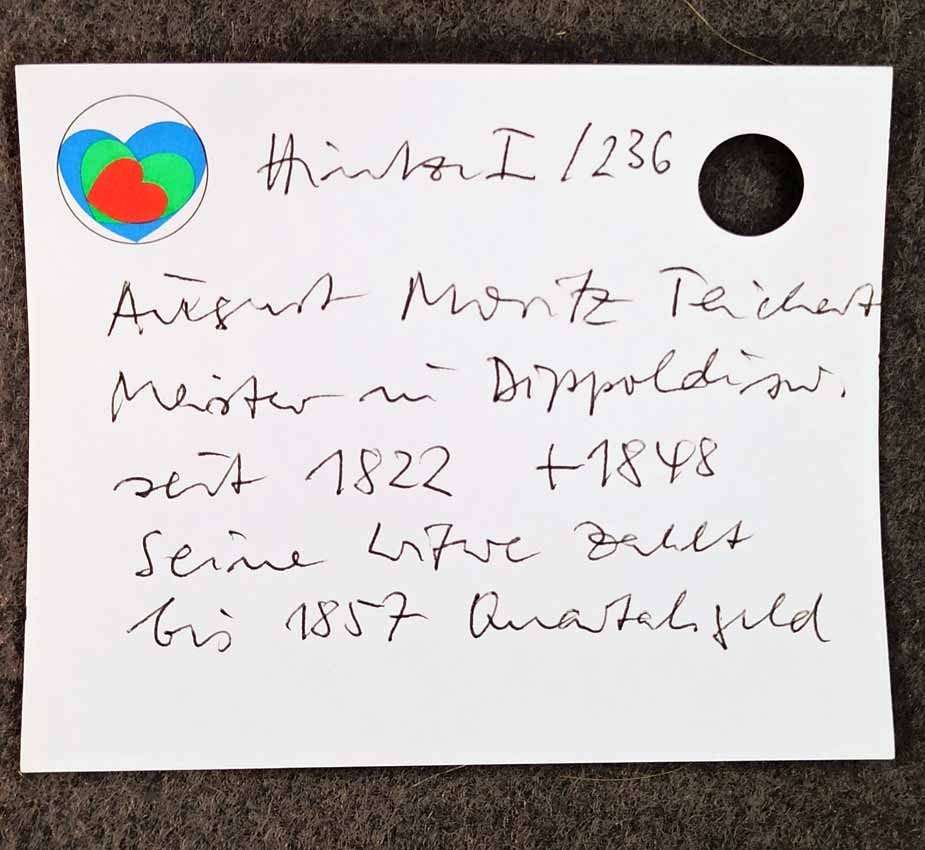 Hintze I / 236
August Moritz Teichert
Meister in Dippoldisw.
seit 1822 +1848
Seine Witwe zahlt
bis 1857 Quartalsgeld